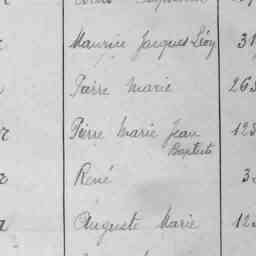 Maurice Jacques Léon 31
Pierre Marie 263
Pierre Marie Jean 123
Baptiste
René 3
Auguste Marie 12